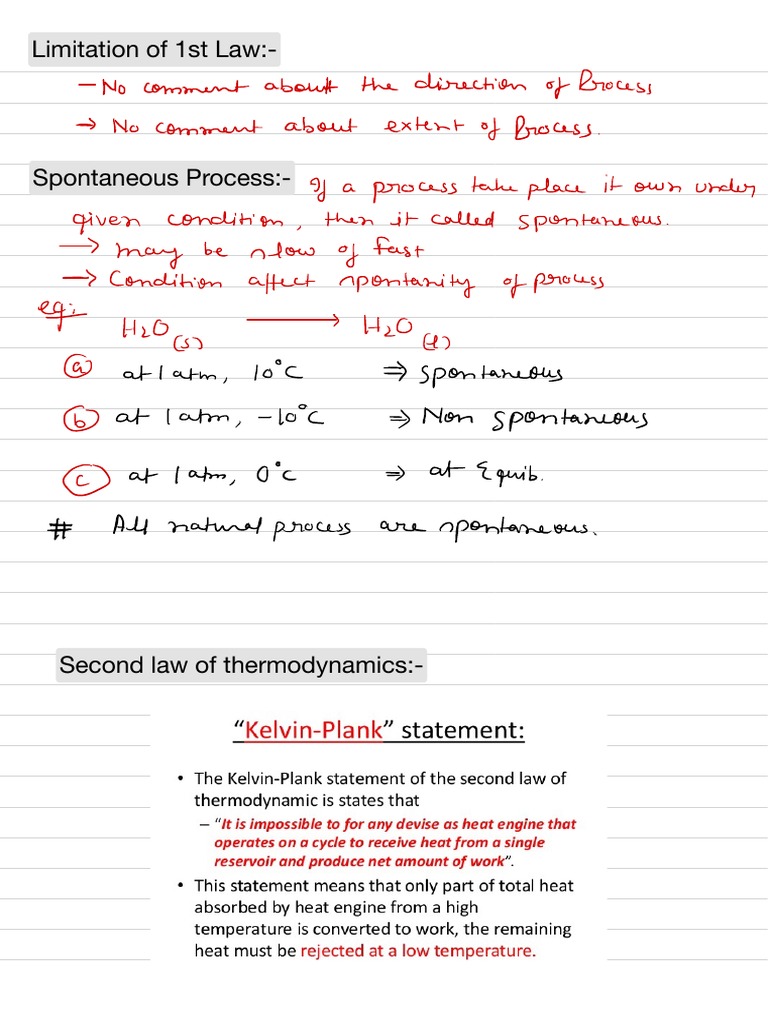 Limitation of 1st Law:-
- No comment about the direction of Process
→ No comment about extent of Process.
Spontaneous Process:- If a process take place it own under
given condition, then it called spontaneous.
→ may be slow of fast
→ Condition affect spontanity of process
eg:
H2O(s) → H2O(l)
(a) at 1 atm, 10°C ⇒ spontaneous
(b) at 1 atm, -10°C ⇒ Non spontaneous
(c) at 1 atm, 0°C ⇒ at Equib.
# All natural process are spontaneous.
Second law of thermodynamics:-
“Kelvin-Plank” statement:
• The Kelvin-Plank statement of the second law of
thermodynamic is states that
– “It is impossible to for any devise as heat engine that
operates on a cycle to receive heat from a single
reservoir and produce net amount of work”.
• This statement means that only part of total heat
absorbed by heat engine from a high
temperature is converted to work, the remaining
heat must be rejected at a low temperature.